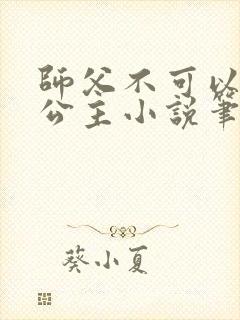 師父不可以
公主小說筆
葵小夏